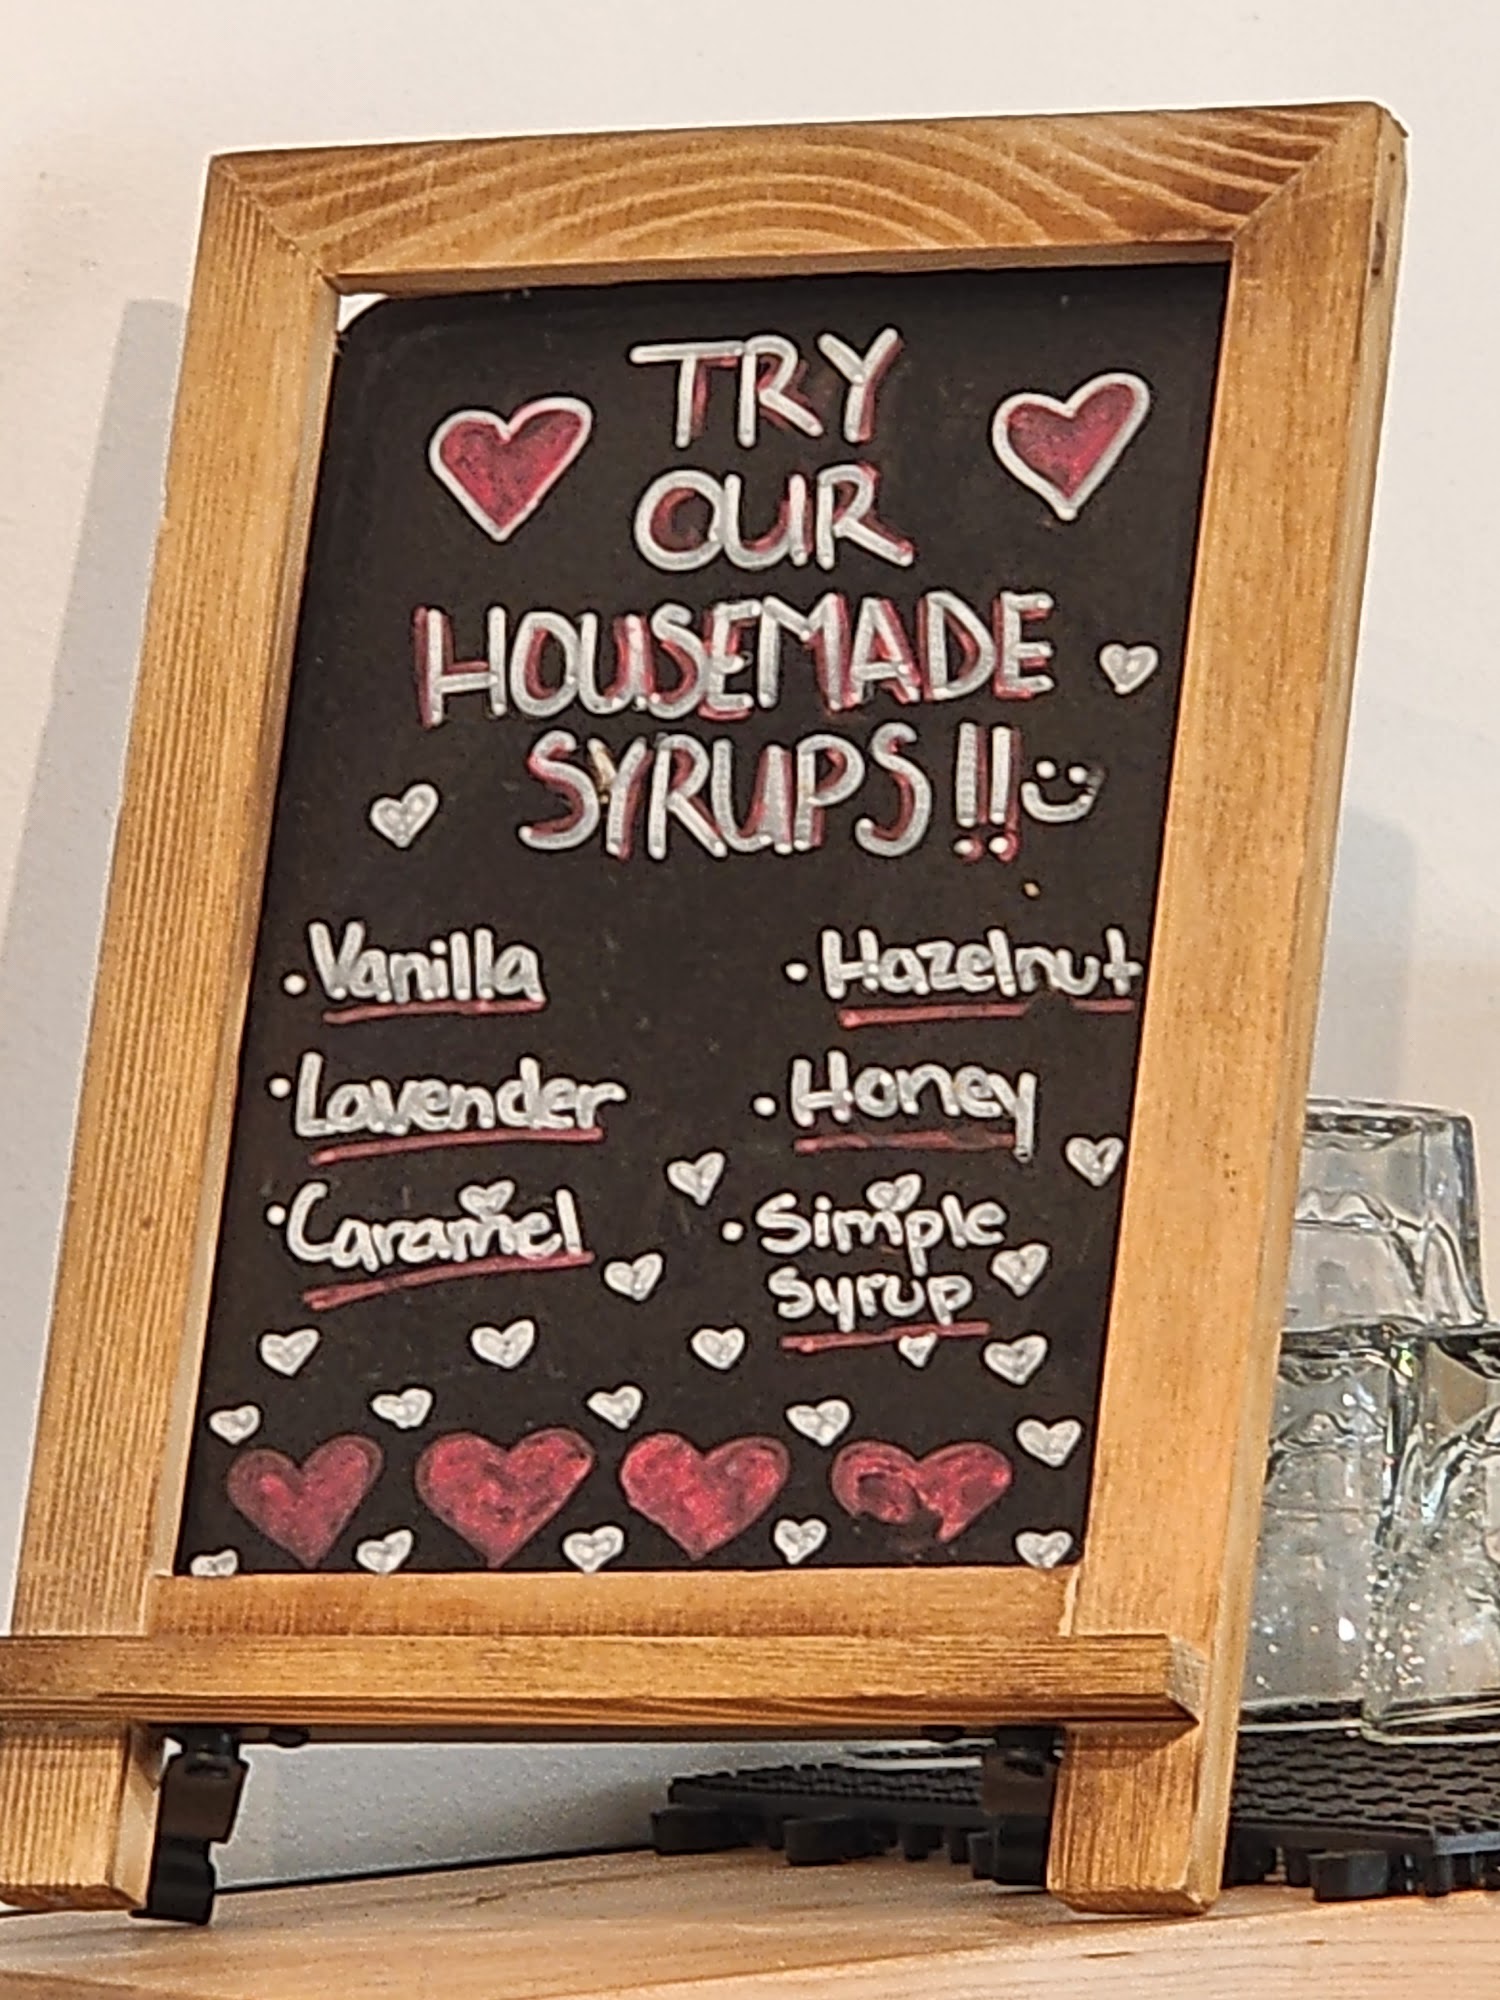 TRY
OUR
HOUSEMADE
SYRUPS!!
• Vanilla
• Lavender
• Caramel
• Hazelnut
• Honey
• Simple
syrup